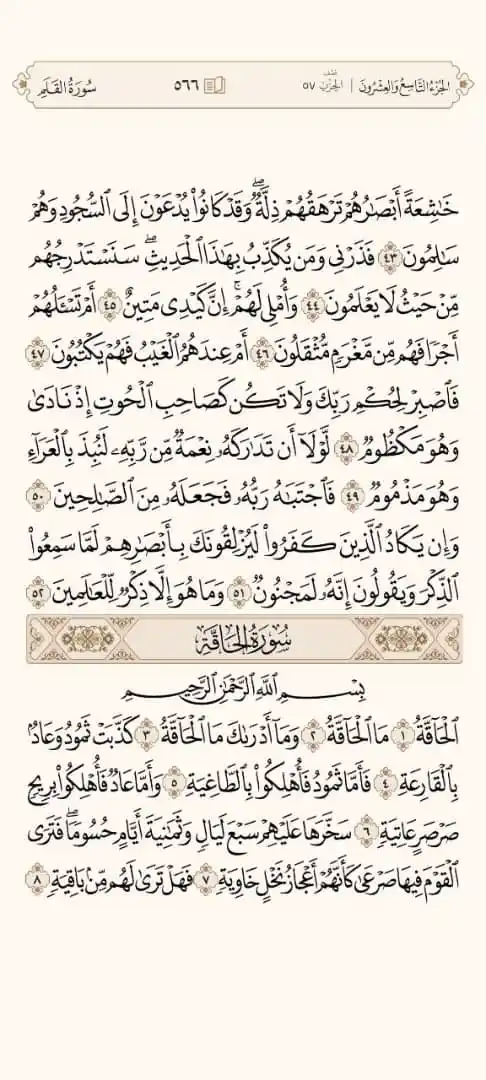 الجزء التاسع والعشرون | نصف الحزب ٥٧ ٥٦٦ سورة القلم
خَٰشِعَةً أَبْصَٰرُهُمْ تَرْهَقُهُمْ ذِلَّةٌۖ وَقَدْ كَانُوا۟ يُدْعَوْنَ إِلَى ٱلسُّجُودِ وَهُمْ
سَٰلِمُونَ ٤٣ فَذَرْنِى وَمَن يُكَذِّبُ بِهَٰذَا ٱلْحَدِيثِۖ سَنَسْتَدْرِجُهُم
مِّنْ حَيْثُ لَا يَعْلَمُونَ ٤٤ وَأُمْلِى لَهُمْۚ إِنَّ كَيْدِى مَتِينٌ ٤٥ أَمْ تَسْـَٔلُهُمْ
أَجْرًا فَهُم مِّن مَّغْرَمٍ مُّثْقَلُونَ ٤٦ أَمْ عِندَهُمُ ٱلْغَيْبُ فَهُمْ يَكْتُبُونَ ٤٧
فَٱصْبِرْ لِحُكْمِ رَبِّكَ وَلَا تَكُن كَصَاحِبِ ٱلْحُوتِ إِذْ نَادَىٰ
وَهُوَ مَكْظُومٌ ٤٨ لَّوْلَآ أَن تَدَٰرَكَهُۥ نِعْمَةٌ مِّن رَّبِّهِۦ لَنُبِذَ بِٱلْعَرَآءِ
وَهُوَ مَذْمُومٌ ٤٩ فَٱجْتَبَٰهُ رَبُّهُۥ فَجَعَلَهُۥ مِنَ ٱلصَّٰلِحِينَ ٥٠
وَإِن يَكَادُ ٱلَّذِينَ كَفَرُوا۟ لَيُزْلِقُونَكَ بِأَبْصَٰرِهِمْ لَمَّا سَمِعُوا۟
ٱلذِّكْرَ وَيَقُولُونَ إِنَّهُۥ لَمَجْنُونٌ ٥١ وَمَا هُوَ إِلَّا ذِكْرٌ لِّلْعَٰلَمِينَ ٥٢
سُورَةُ الحَاقَّةِ
بِسْمِ ٱللَّهِ ٱلرَّحْمَٰنِ ٱلرَّحِيمِ
ٱلْحَآقَّةُ ١ مَا ٱلْحَآقَّةُ ٢ وَمَآ أَدْرَىٰكَ مَا ٱلْحَآقَّةُ ٣ كَذَّبَتْ ثَمُودُ وَعَادٌۢ
بِٱلْقَارِعَةِ ٤ فَأَمَّا ثَمُودُ فَأُهْلِكُوا۟ بِٱلطَّاغِيَةِ ٥ وَأَمَّا عَادٌ فَأُهْلِكُوا۟ بِرِيحٍ
صَرْصَرٍ عَاتِيَةٍ ٦ سَخَّرَهَا عَلَيْهِمْ سَبْعَ لَيَالٍ وَثَمَٰنِيَةَ أَيَّامٍ حُسُومًاۖ فَتَرَى
ٱلْقَوْمَ فِيهَا صَرْعَىٰ كَأَنَّهُمْ أَعْجَازُ نَخْلٍ خَاوِيَةٍ ٧ فَهَلْ تَرَىٰ لَهُم مِّنۢ بَاقِيَةٍ ٨